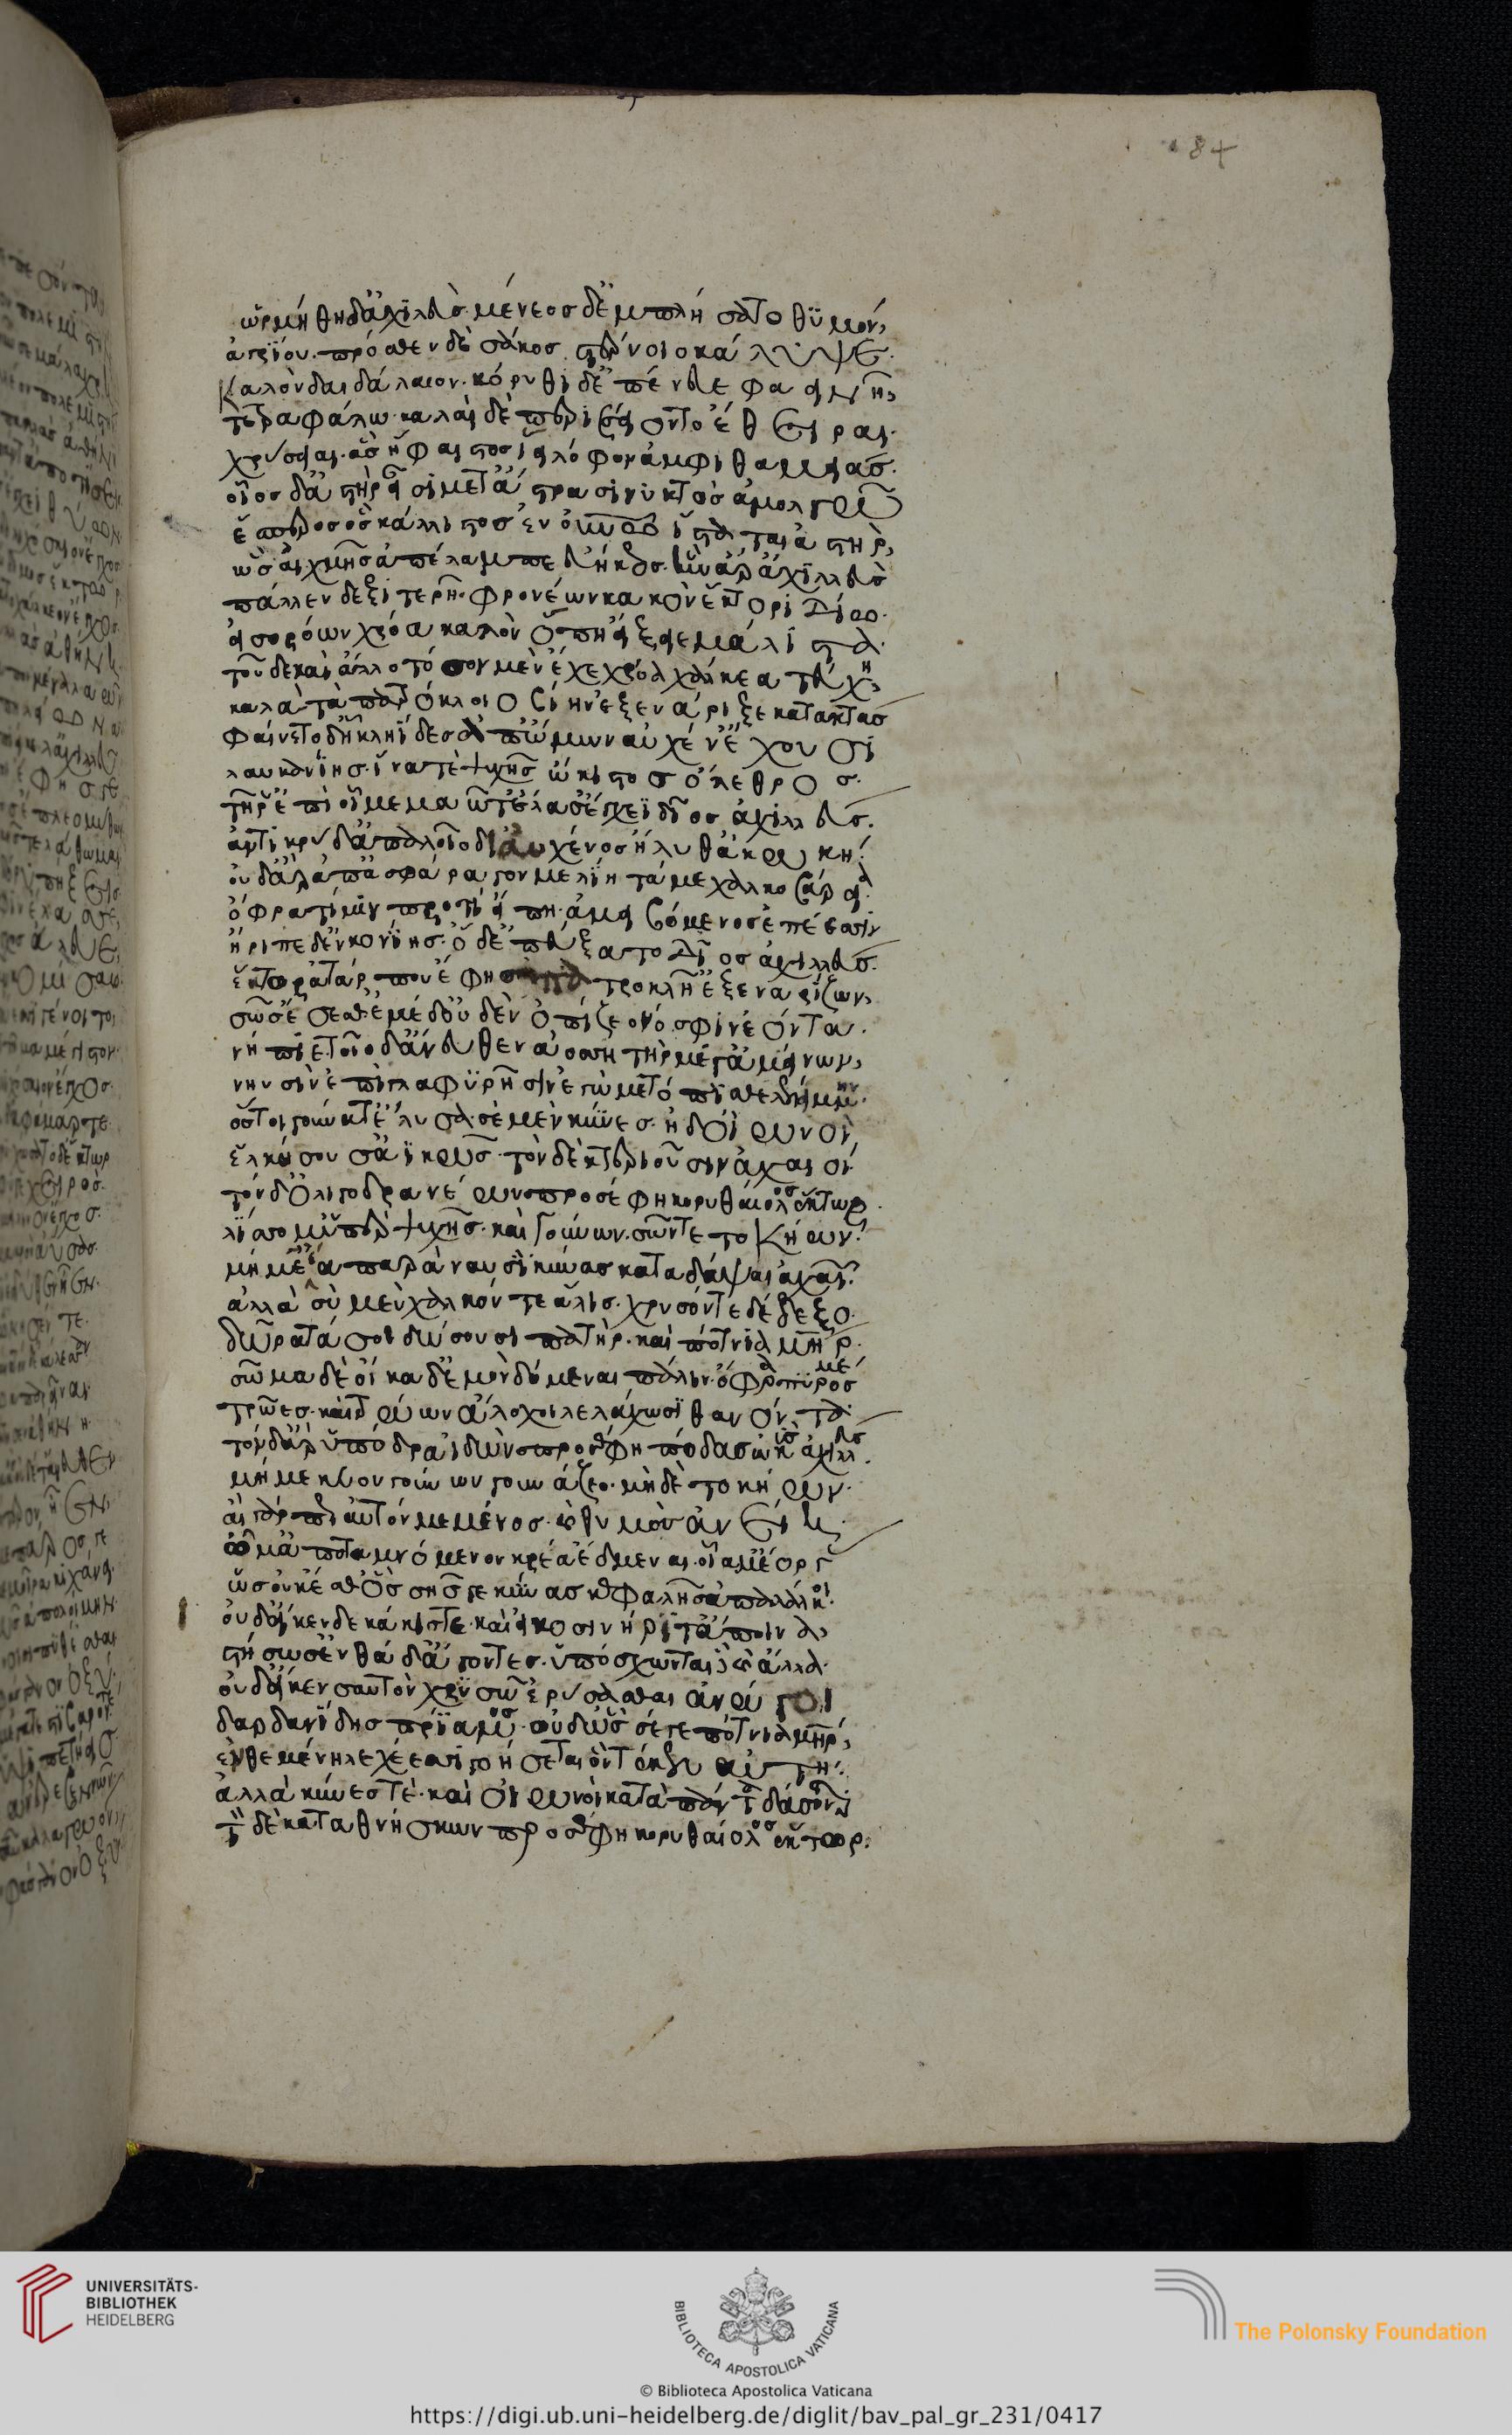 ὡρμήθη δ' ἀχιλευς· μένεος δ' ἐμπλήσατο θυμὸν,
ἀγρίου. πρόσθεν δὲ σάκος στέρνοιο κάλυψε.
καλὸν δαιδάλαιον. κόρυθι δ' ἐπένευε φαεινῆ,
τετραφάλω· καλαὶ δὲ περισσείοντο ἔθειραι.
χρύσεαι. ἃς ἥφαιστος ἵει λόφον ἀμφὶ θαμειάς.
οἷος δ' ἀστὴρ εἶσι μετ' ἀστράσι νυκτὸς ἀμολγῶ
ἕσπερος ὃς κάλλιστος ἐν οὐρανῶ ἵσταται ἀστὴρ,
ὣς αἰχμῆς ἀπέλαμπε εὐήκεος. ἣν ἄρ' ἀχιλλεὺς
πάλλεν δεξιτερῆ. φρονέων κακὸν ἕκτορι δίω.
εἰσορόων χρόα καλὸν ὅπη εἴξειε μάλιστα.
τοῦ δὲ καὶ ἄλλο τόσον μὲν ἔχε χρόα χάλκεα τεύχη,
καλὰ τὰ πατρόκλοιο βίην ἐξενάριξε κατακτάς
φαίνετο δ' ἧ κληῖδες ἀπ' ὤμων αὐχέν' ἔχουσι
λαυκανίης. ἵνα τὲ ψυχῆς ὤκιστος ὄλεθρος.
τῆ ῥ' ἐπὶ οἷ μεμαῶτ' ἔλασ' ἔγχεϊ δῖος ἀχιλλεύς.
ἀντικρὺ δ' ἁπαλοῖο δι' αὐχένος ἤλυθ' ἀκωκή.
οὐδ' ἄρ' ἀπ' ἀσφάραγον μελίη τάμε χαλκοβάρεια.
ὄφρα τί μιν προτιείπη. ἀμειβόμενος ἐπέεσσιν
ἤριπε δ' ἐν κονίης. ὃ δ' ἐπεύξατο δῖος ἀχιλλεύς.
ἕκτορ ἀτάρ που ἔφης πατροκλῆ' ἐξεναρίζων,
σῶς ἔσεσθ' ἐμὲ δ' οὐδὲν ὀπίζεο νόσφιν ἐόντα.
νήπιε. τοῖο δ' ἄνευθεν ἀοσσητὴρ μέγ' ἀμείνων,
νηυσὶν ἔπι γλαφυρῆσιν ἐγὼ μετόπισθε λελείμμην.
ὅς τοι γούνατ' ἔλυσα. σὲ μὲν κύνες. ἠδ' οἰωνοὶ,
ἑλκήσουσ' ἀϊκῶς. τὸν δὲ κτεριοῦσιν ἀχαιοί
τὸν δ' ὀλιγοδρανέων προσέφη κορυθαίολος ἕκτωρ.
λίσσομ' ὑπὲρ ψυχῆς. καὶ γούνων. σῶν τε τοκήων.
μή με ἔα παρὰ νηυσὶ κύνας καταδάψαι ἀχαιῶν.
ἀλλὰ σὺ μὲν χαλκόν τε ἅλις. χρυσόν τε δέδεξο.
δῶρα τά σοι δώσουσι πατὴρ. καὶ πότνια μήτηρ.
σῶμα δὲ οἴκαδ' ἐμὸν δόμεναι πάλιν. ὄφρα πυρός με
τρῶες. καὶ τρώων ἄλοχοι λελάχωσι θανόντα.
τὸν δ' ἄρ' ὑπόδρα ἰδὼν προσέφη πόδας ὠκὺς ἀχιλλεύς.
μή με κύον γούνων γουνάζεο. μὴ δὲ τοκήων.
αἲ γάρ πως αὐτόν με μένος. καὶ θυμὸς ἀνείη.
ὤμ' ἀποταμνόμενον κρέα ἔδμεναι. οἷά μ' ἔοργας
ὡς οὐκ ἔσθ' ὃς σῆς γε κύνας κεφαλῆς ἀπαλάλκοι.
οὐδ' εἴ κεν δεκάκις τε. καὶ εἰκοσινήριτ' ἄποινα,
στήσωσ' ἐνθάδ' ἄγοντες. ὑπόσχωνται δὲ καὶ ἄλλα.
οὐδ' εἴ κεν σ' αὐτὸν χρυσῶ ἐρύσασθαι ἀνώγοι
δαρδανίδης πρίαμος. οὐδ' ὧς σέ γε πότνια μήτηρ,
ἐνθεμένη λεχέεσσι γοήσεται ὃν τέκεν αὐτή.
ἀλλὰ κύνες τὲ. καὶ οἰωνοὶ κατὰ πάντα δάσονται
τὸν δὲ καταθνήσκων προσέφη κορυθαίολος ἕκτωρ.
UNIVERSITÄTS-
BIBLIOTHEK
HEIDELBERG
BIBLIOTECA APOSTOLICA VATICANA
The Polonsky Foundation
© Biblioteca Apostolica Vaticana
https://digi.ub.uni-heidelberg.de/diglit/bav_pal_gr_231/0417